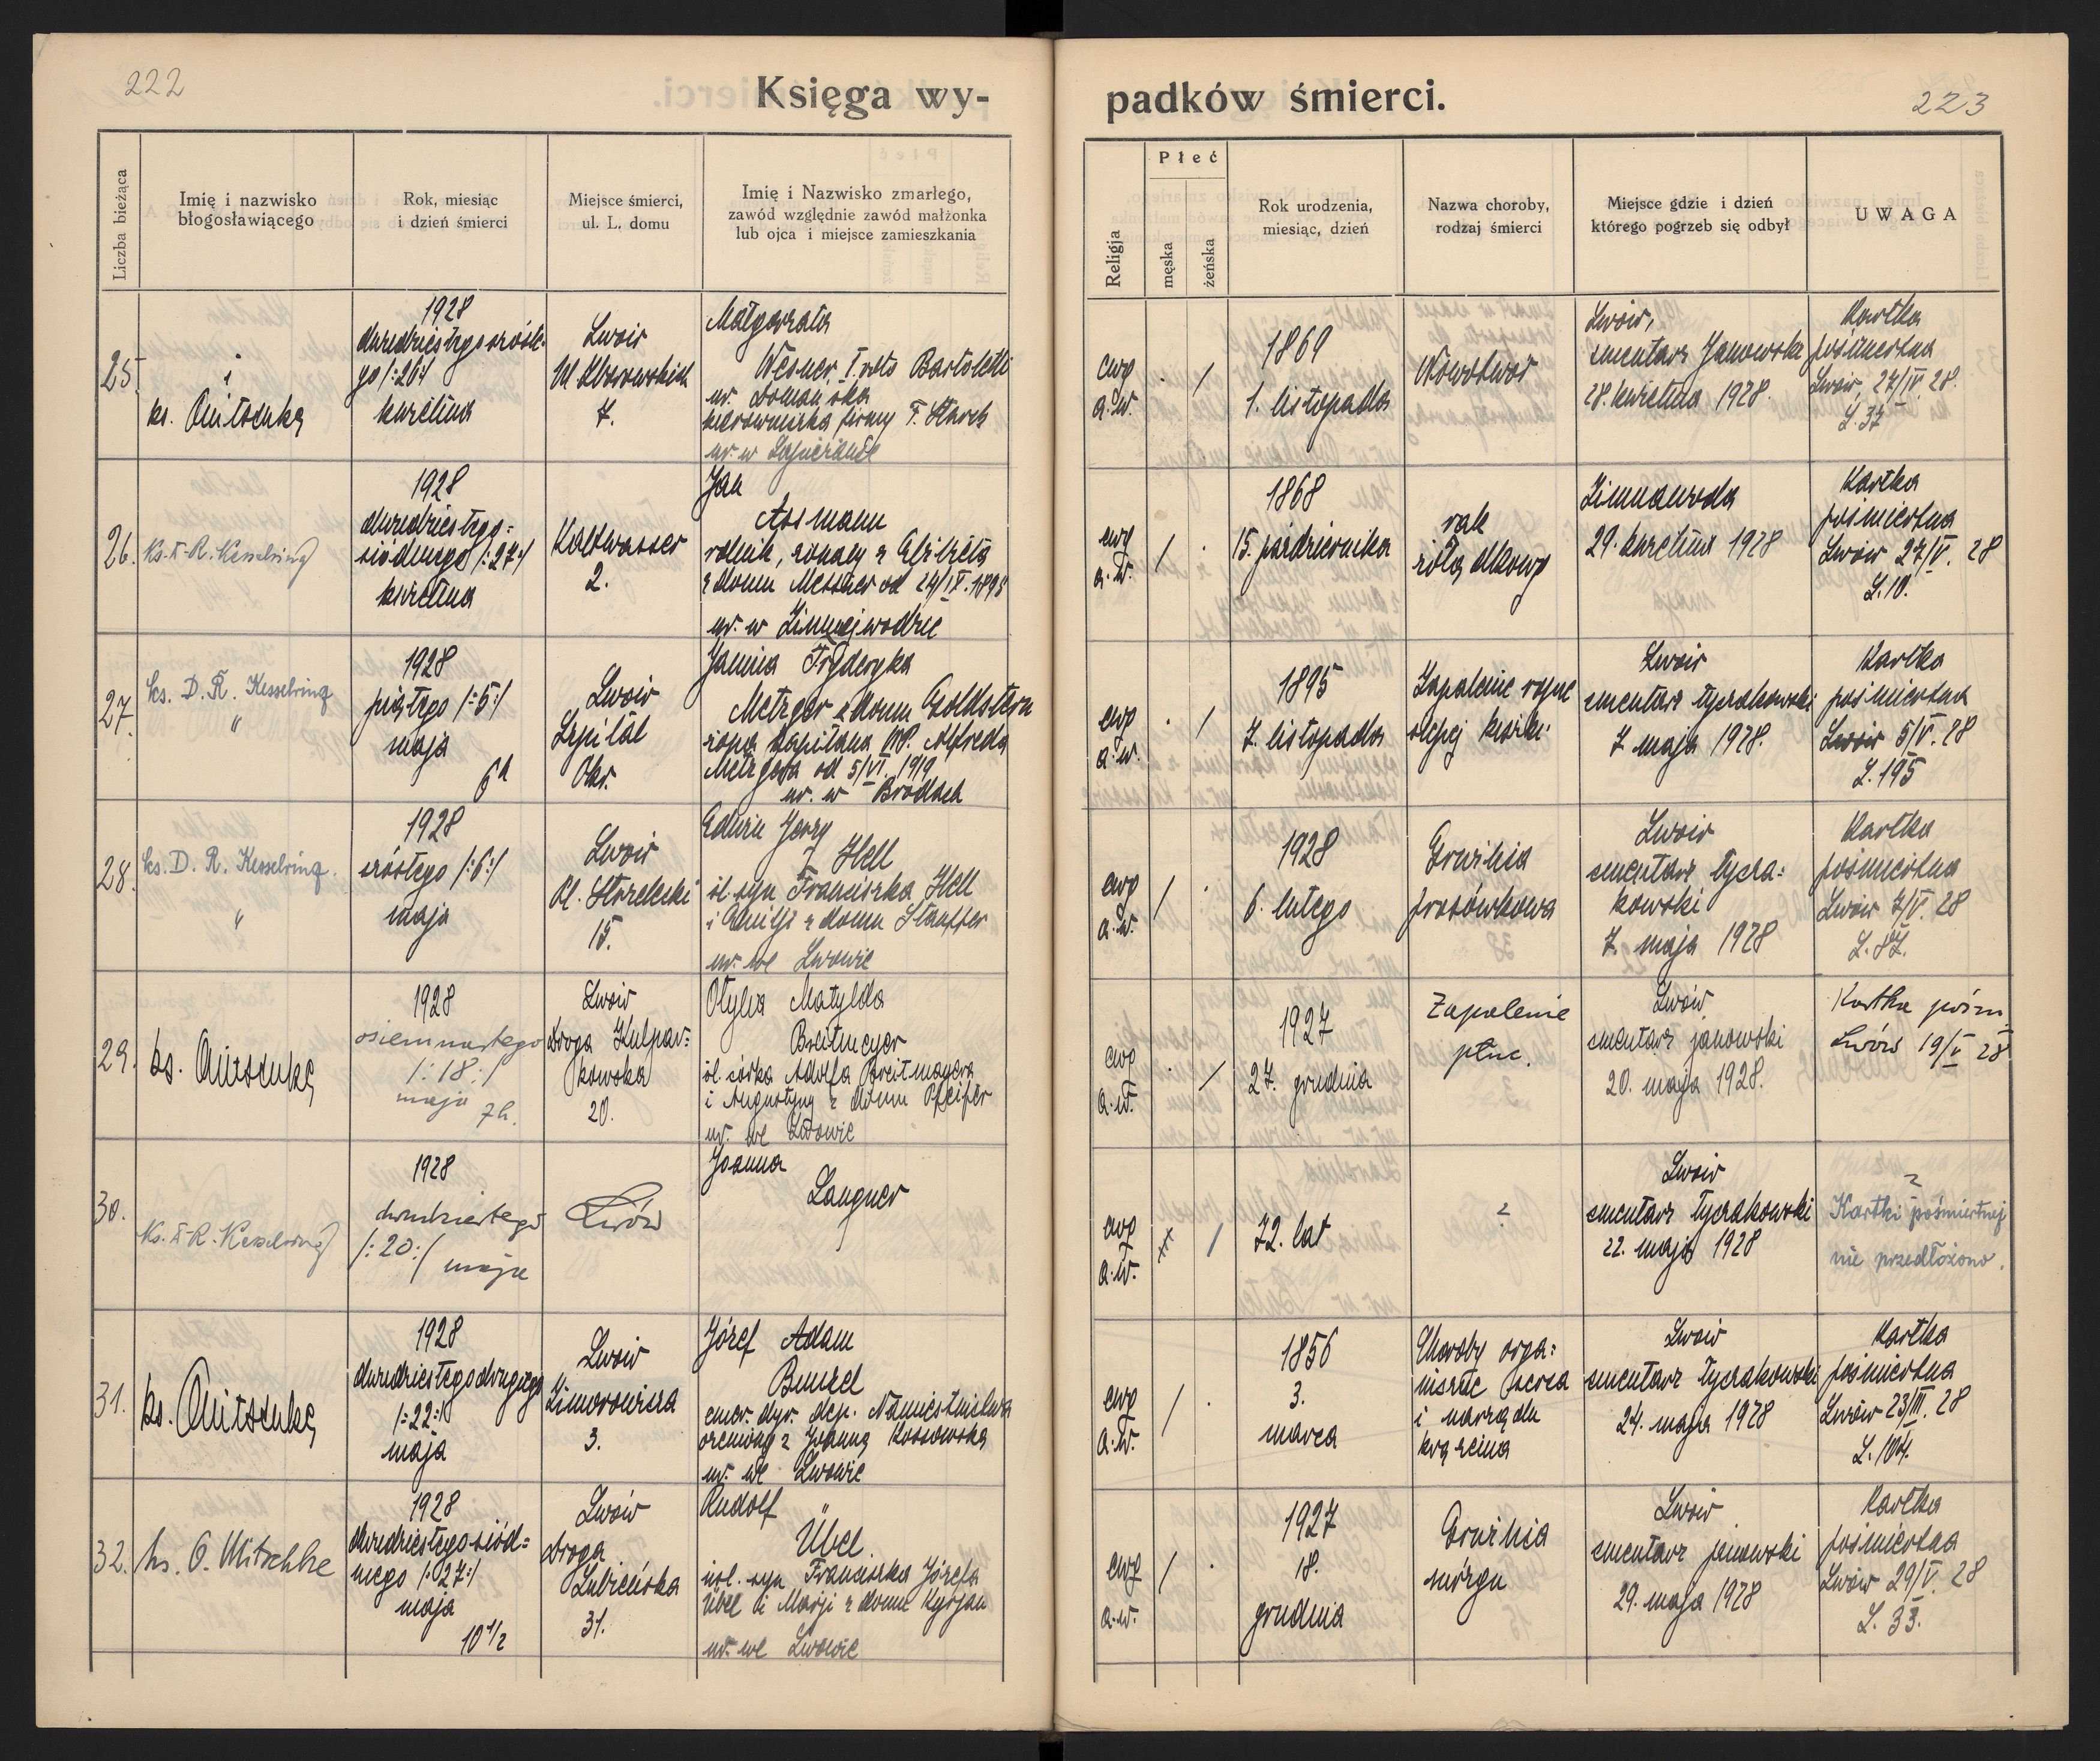 222
Księga wy-
padków śmierci.
223
Liczba bieżąca
Imię i nazwisko
błogosławiącego
Rok, miesiąc
i dzień śmierci
Miejsce śmierci,
ul. L. domu
Imię i Nazwisko zmarłego,
zawód względnie zawód małżonka
lub ojca i miejsce zamieszkania
Religja
Płeć
męska
żeńska
Rok urodzenia,
miesiąc, dzień
Nazwa choroby,
rodzaj śmierci
Miejsce gdzie i dzień
którego pogrzeb się odbył
UWAGA
25.
ks.
1928
/:26:/
kwietnia
Lwów
7.
Małgorzata
Wesner, Bartoletti
ur. Domańska
kierowniczka firmy
ur. w
ewg
a.w.
1869
1. listopada
Nowotwór
Lwów,
cmentarz Janowski
28. kwietnia 1928.
Kartka
pośmiertna
Lwów, 27/IV. 28.
L. 37
26.
Ks. D. R. Kesselring
1928
dwudziestego-
siódmego /:27:/
kwietnia
Kaltwasser
2.
Jan
Assmann
rolnik, żonaty z Elżbietą
z domu od 24/IX. 1895
ur. w Zimnejwodzie
ewg
a.w.
1868
15. października
rak
żołądkowy
Zimnawoda
29. kwietnia 1928
Kartka
pośmiertna
Lwów 27/IV. 28
L. 10.
27.
ks. D. R. Kesselring
"
1928
piątego /:5:/
maja
6h
Lwów
Szpital
Okr.
Janina Fryderyka
Metzger z domu Goldstern
żona kapitana WP. Alfreda
Metzgera od 5/VI. 1919
ur. w Brodach
ewg
a.w.
1895
7. listopada
Zapalenie ropne
ślepej kiszki
Lwów
cmentarz łyczakowski
7. maja 1928.
Kartka
pośmiertna
Lwów 5/V. 28
L. 195
28.
ks. D. R. Kesselring.
"
1928
szóstego /:6:/
maja
Lwów
Pl. Strzelecki
15.
Edwin Jerzy
Hell
śl. syn Franciszka Hell
i Emilji z domu Stauffer
ur. we Lwowie
ewg
a.w.
1928
6. lutego
Gruźlica
prosówkowa
Lwów
cmentarz łycza-
kowski
7. maja 1928
Kartka
pośmiertna
Lwów 7/V. 28
L. 87.
29.
ks.
1928
osiemnastego
/:18:/
maja 7h.
Lwów
Droga Kulpar-
kowska
20.
Otylia Matylda
Breitmeyer
śl. córka Adolfa Breitmayera
i Augustyny z domu Pfeifer
ur. we Lwowie
ewg
a.w.
1927
27. grudnia
Zapalenie
płuc.
Lwów
cmentarz janowski
20. maja 1928.
Kartka pośm
Lwów 19/V 28
30.
Ks. D. R. Kesselring
1928
dwudziestego
/:20:/ maja
Lwów
Joanna
Langner
ewg
a.w.
72. lat
?
Lwów
cmentarz łyczakowski
22. maja 1928
?
Kartki pośmiertnej
nie przedłożono.
31.
ks.
1928
dwudziestegodrugiego
/:22:/
maja
Lwów
Zimorowicza
3.
Józef Adam
emer. dyr. dep. Namiestnictwa
ożeniony z Joanną Kossowską
ur. we Lwowie
ewg
a.w.
1856
3.
marca
Choroby orga-
niczne serca
i narządu
krążenia
Lwów
cmentarz łyczakowski
24. maja 1928
Kartka
pośmiertna
Lwów 28
L. 104.
32.
ks. O. Mitschke
1928
dwudziestegosiód-
mego /:27:/
maja
10 1/2
Lwów
Droga
Lubieńska
31.
Rudolf
Übel
śl. syn Franciszka Józefa
Übel i Marji z domu Kyrjan
ur. we Lwowie
ewg
a.w.
1927
18.
grudnia
Gruźlica
mózgu
Lwów
cmentarz janowski
29. maja 1928
Kartka
pośmiertna
Lwów 29/V. 28
L. 33.